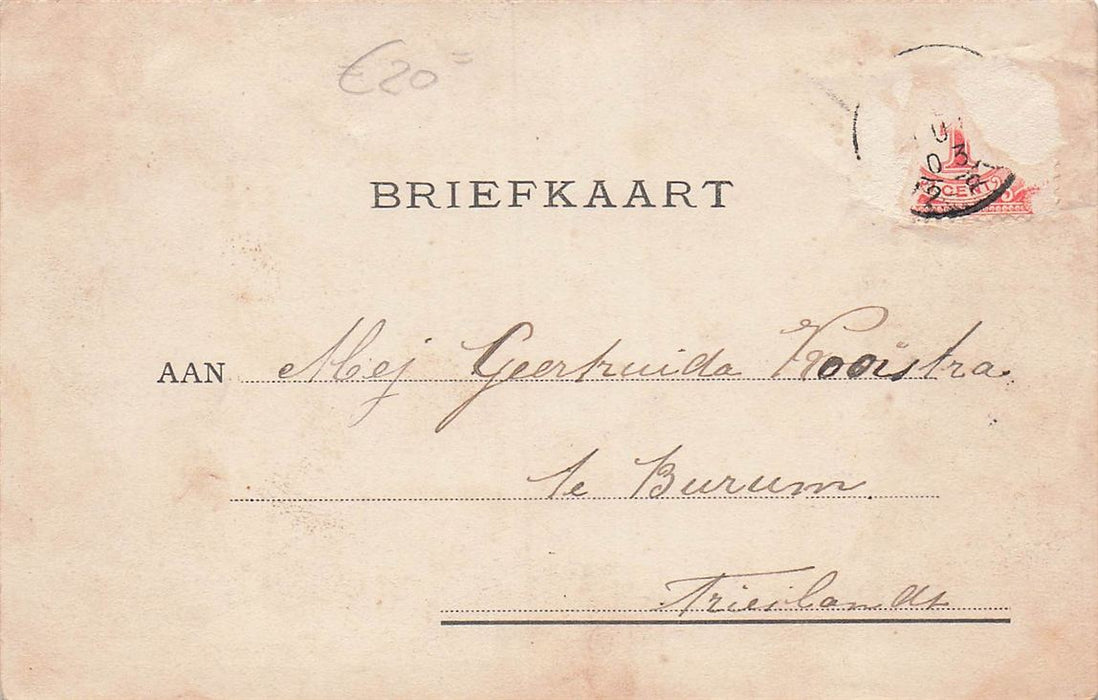 €20=
BRIEFKAART
1
CENT
AAN Mej Geertruida Kooistra
te Burum
Frieslandt